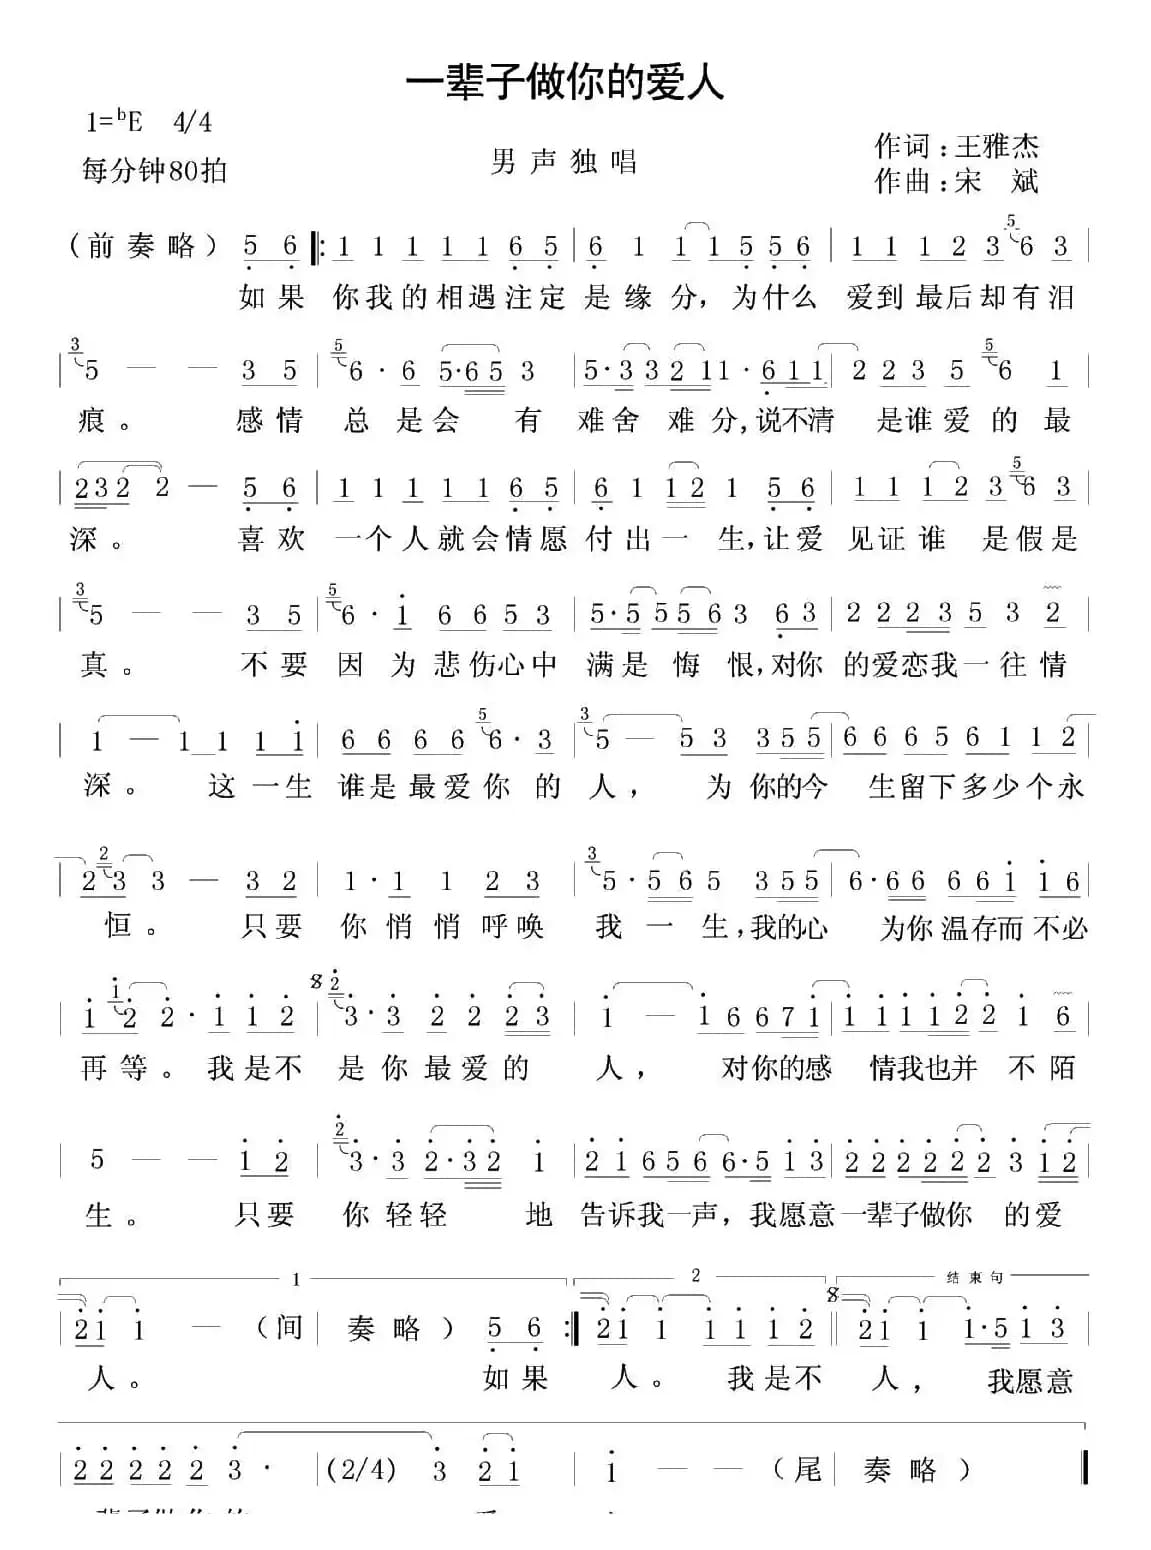 一辈子做你的爱人
1=ᵇE 4/4
每分钟80拍
男声独唱
作词:王雅杰
作曲:宋 斌
(前奏略) 5 6 1 1 1 1 1 6 5 6 1 1 1 5 5 6 1 1 1 2 3 5 6 3
如果 你我的相遇注定 是缘分,为什么 爱到最后却有泪
3 5 — — 3 5 5 6· 6 5·6 5 3 5·3 3 2 1 1· 6 1 1 2 2 3 5 5 6 1
痕。 感情 总是会 有 难舍难分,说不清 是谁爱的最
2 3 2 2 — 5 6 1 1 1 1 1 6 5 6 1 1 2 1 5 6 1 1 1 2 3 5 6 3
深。 喜欢 一个人就会情愿 付出一 生,让爱 见证谁 是假是
3 5 — — 3 5 5 6· 1 6 6 5 3 5·5 5 5 6 3 6 3 2 2 2 3 5 3 2
真。 不要 因为悲伤心中 满是悔恨,对你 的爱恋我一往情
1 — 1 1 1 1 6 6 6 6 5 6·3 3 5 — 5 3 3 5 5 6 6 6 5 6 1 1 2
深。 这一生 谁是最爱你的 人, 为你的今 生留下多少个永
2 2 3 3 — 3 2 1·1 1 2 3 3 5·5 6 5 3 5 5 6·6 6 6 6 1 1 6
恒。 只要 你悄悄呼唤 我一生,我的心 为你温存而不必
1 1 2 2·1 1 2 2 3·3 2 2 2 3 1 — 1 6 6 7 1 1 1 1 2 2 1 6
再等。我是不 是你最爱的 人, 对你的感 情我也并不陌
5 — — 1 2 2 3·3 2·3 2 1 2 1 6 5 6 6·5 1 3 2 2 2 2 2 2 3 1 2
生。 只要 你轻轻 地 告诉我一声,我愿意一辈子做你 的爱
1 2 结束句
2 1 1 — (间 奏略) 5 6 2 1 1 1 1 1 2 2 1 1 1·5 1 3
人。 如果 人。 我是不 人, 我愿意
2 2 2 2 2 3· (2/4) 3 2 1 1 — — (尾 奏略)